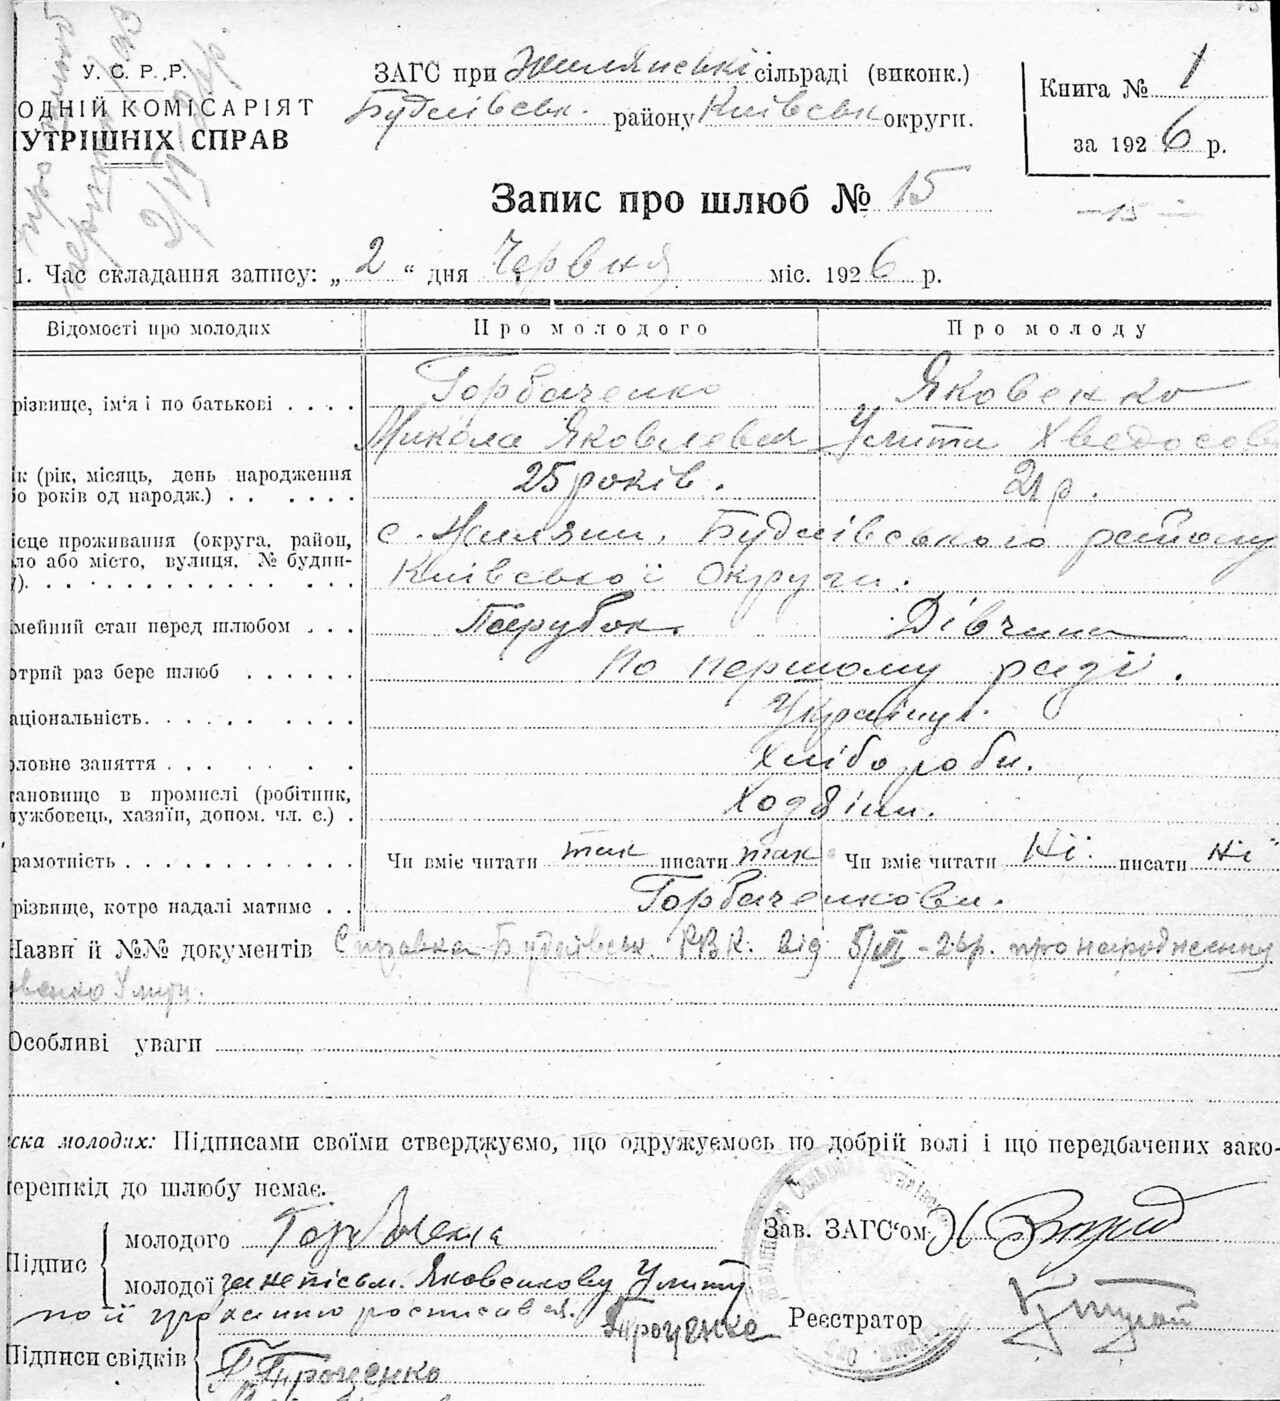 У. С. Р. Р.
ОДНІЙ КОМІСАРІЯТ
УТРІШНІХ СПРАВ
ЗАГС при Жилянські сільраді (виконк.)
Будаївськ. району Київськ округи.
Книга № 1
за 1926 р.
Запис про шлюб № 15
—15—
1. Час складання запису: „ 2 “ дня Червня міс. 1926 р.
Відомості про молодих Про молодого Про молоду
різвище, ім'я і по батькові . . . . Горбаченко Яковенко
Микола Яковлевич Улита Хведосов
к (рік, місяць, день народження 25 років. 21 р.
о років од народж.) . . . . . .
ісце проживання (округа, район, с. Жиляни. Будаївського району
ло або місто, вулиця, № будин-
). . . . . . . . . . . . . Київської Округи.
мейний стан перед шлюбом . . . Парубок. Дівчина
отрий раз бере шлюб . . . . . . По першому разі.
аціональність. . . . . . . . . . Українці.
ловне заняття . . . . . . . Хлібороби.
тановище в промислі (робітник, Ходзіни.
ужбовець, хазяїн, допом. чл. с.) .
рамотність . . . . . . . . . . . . Чи вміє читати так писати так Чи вміє читати Ні. писати Ні
різвище, котре надалі матиме . . Горбаченкови.
Назви й №№ документів Справка Будаївськ. РВК. від 5/VІ-26р. про народження
овенко Улити.
Особливі уваги
ска молодих: Підписами своїми стверджуємо, що одружуємось по добрій волі і що передбачених зако-
ерешкід до шлюбу немає.
Підпис молодого Горбаченко
молодої за непісьм. Яковенкову Улиту
по її проханню росписався. Проценко
Зав. ЗАГС'ом
Реєстратор
Підписи свідків Проценко